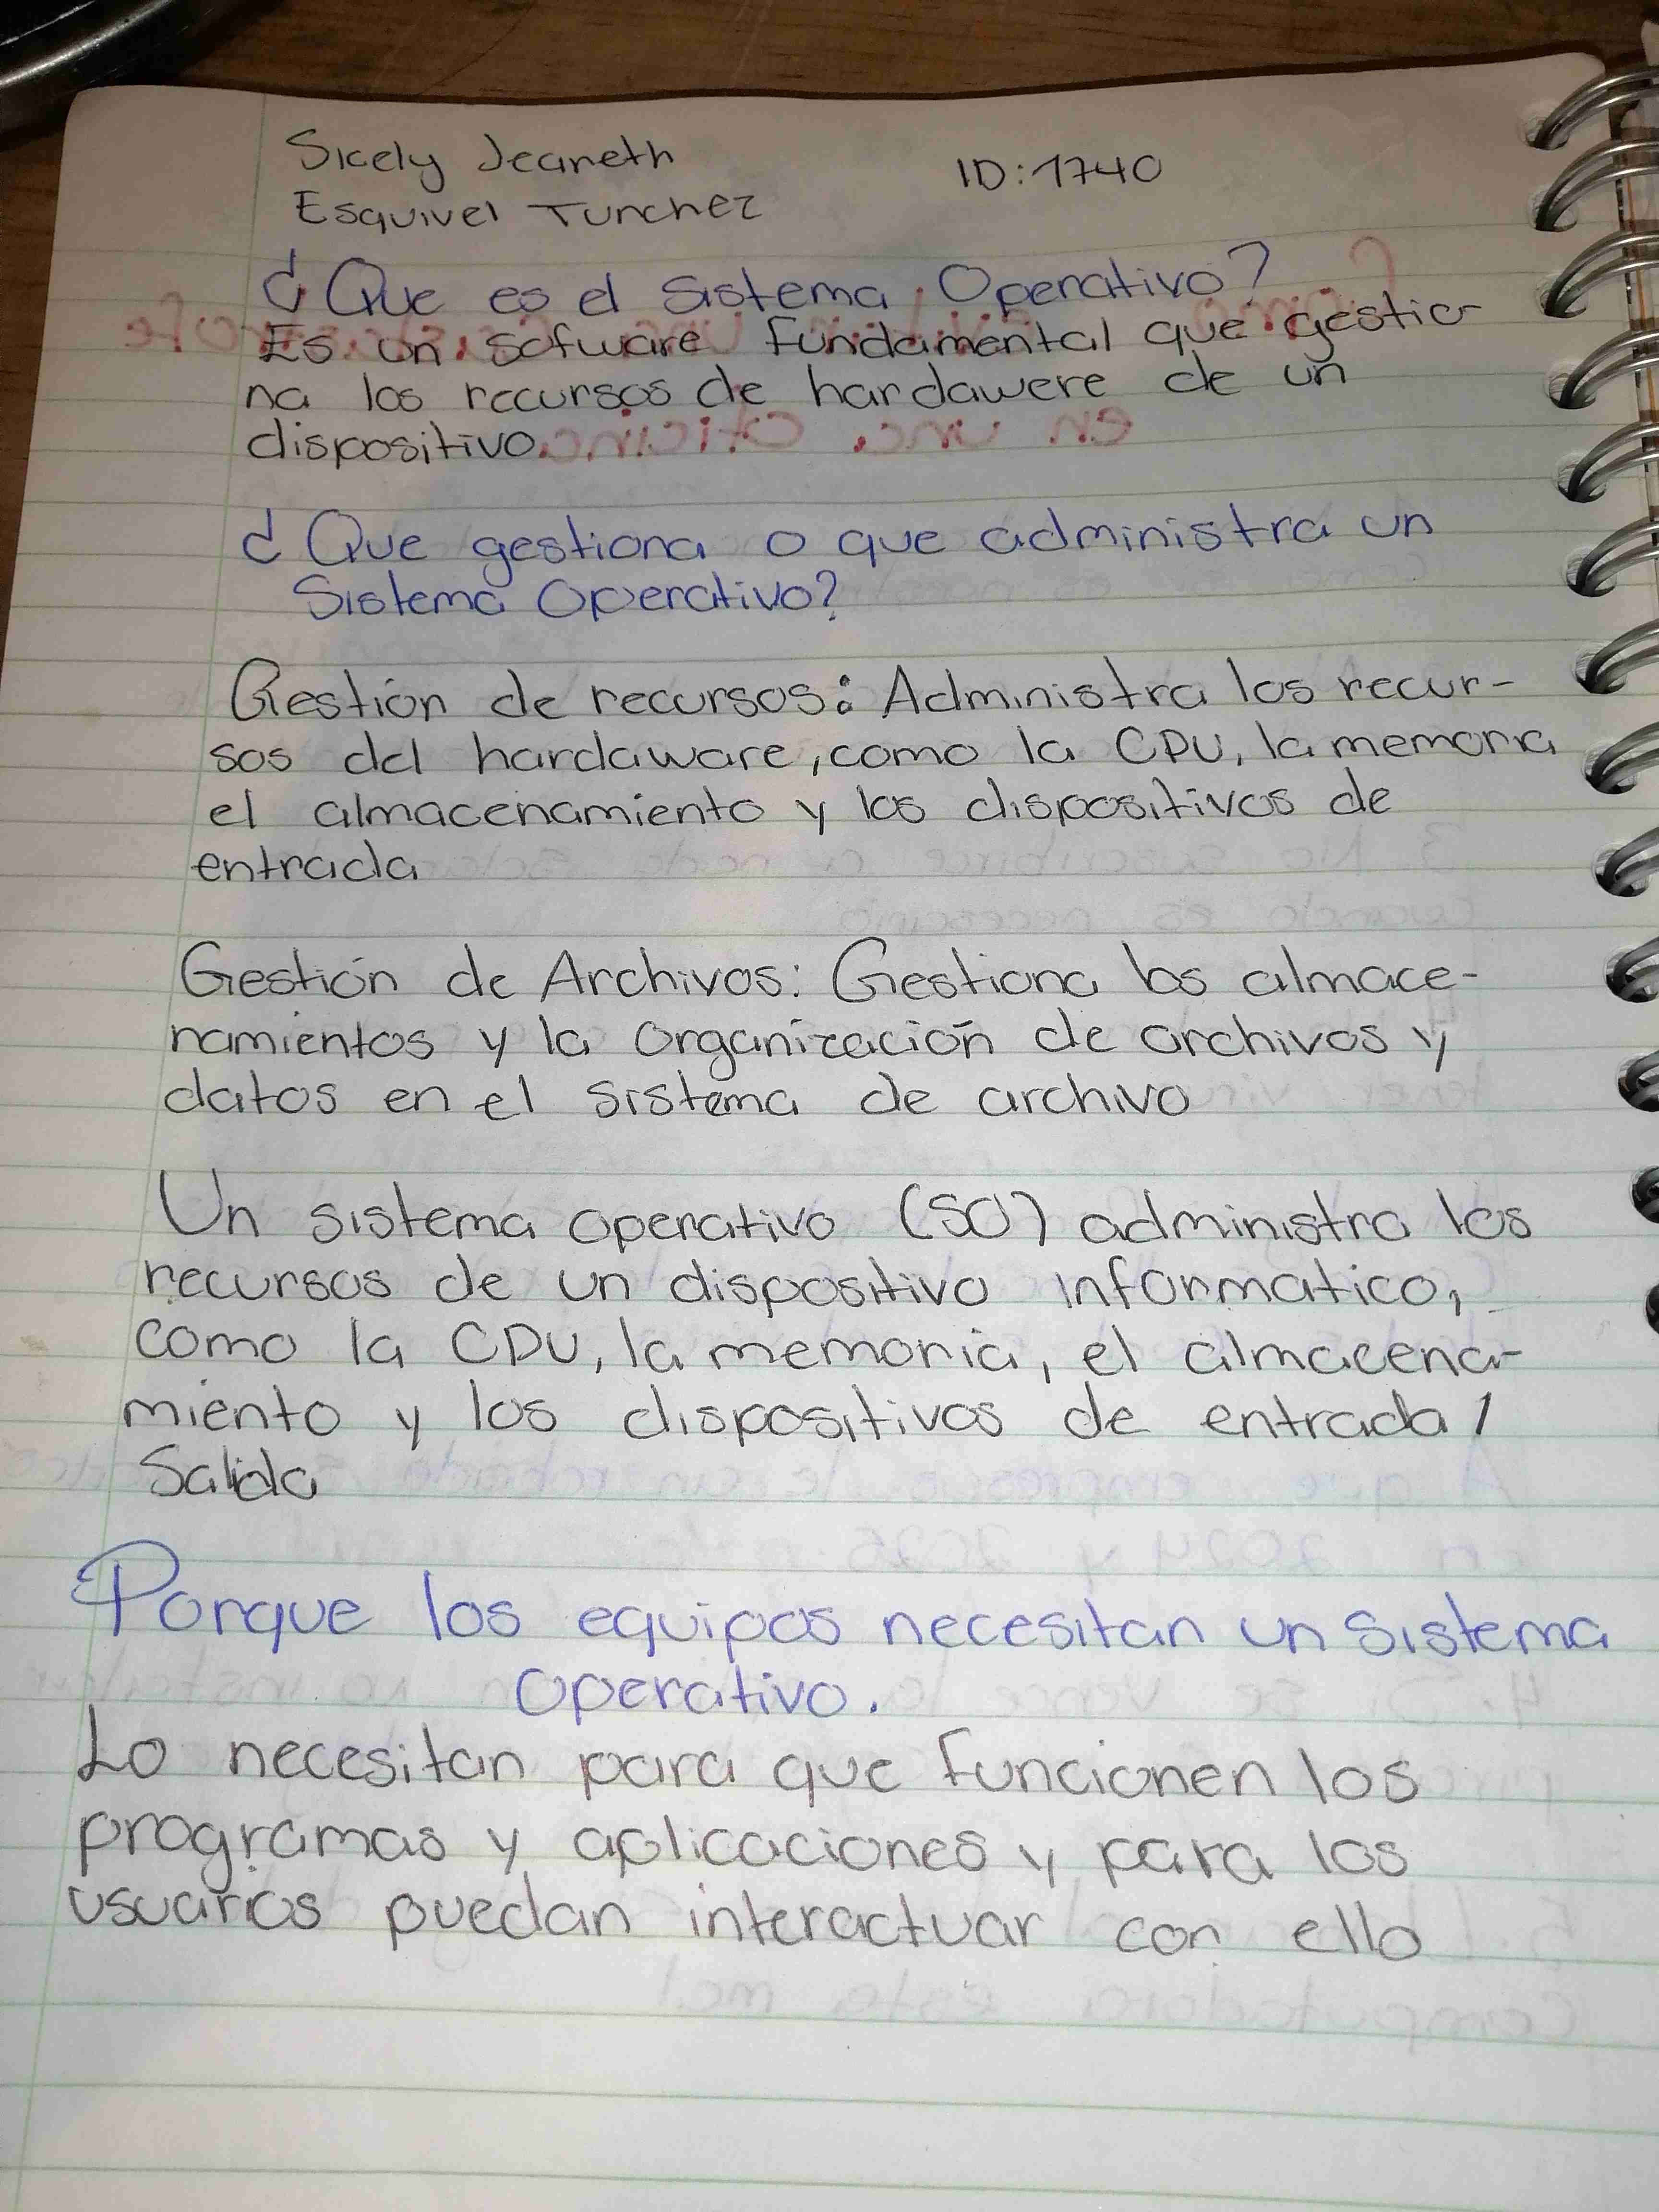 Sicely Jeaneth
ID: 1740
Esquivel Tunchez
¿Que es el Sistema Operativo?
Es un sofware fundamental que gestio
na los recursos de hardawere de un
dispositivo.
¿Que gestiona o que administra un
Sistema Operativo?
Gestión de recursos: Administra los recur-
sos del hardaware, como la CPU, la memoria
el almacenamiento y los dispositivos de
entrada
Gestión de Archivos: Gestiona los almace-
namientos y la organización de archivos y
datos en el sistema de archivo
Un sistema operativo (SO) administra los
recursos de un dispositivo informatico,
como la CPU, la memoria, el almacena-
miento y los dispositivos de entrada /
Salida
Porque los equipos necesitan un Sistema
Operativo.
Lo necesitan para que funcionen los
programas y aplicaciones y para los
usuarios puedan interactuar con ello